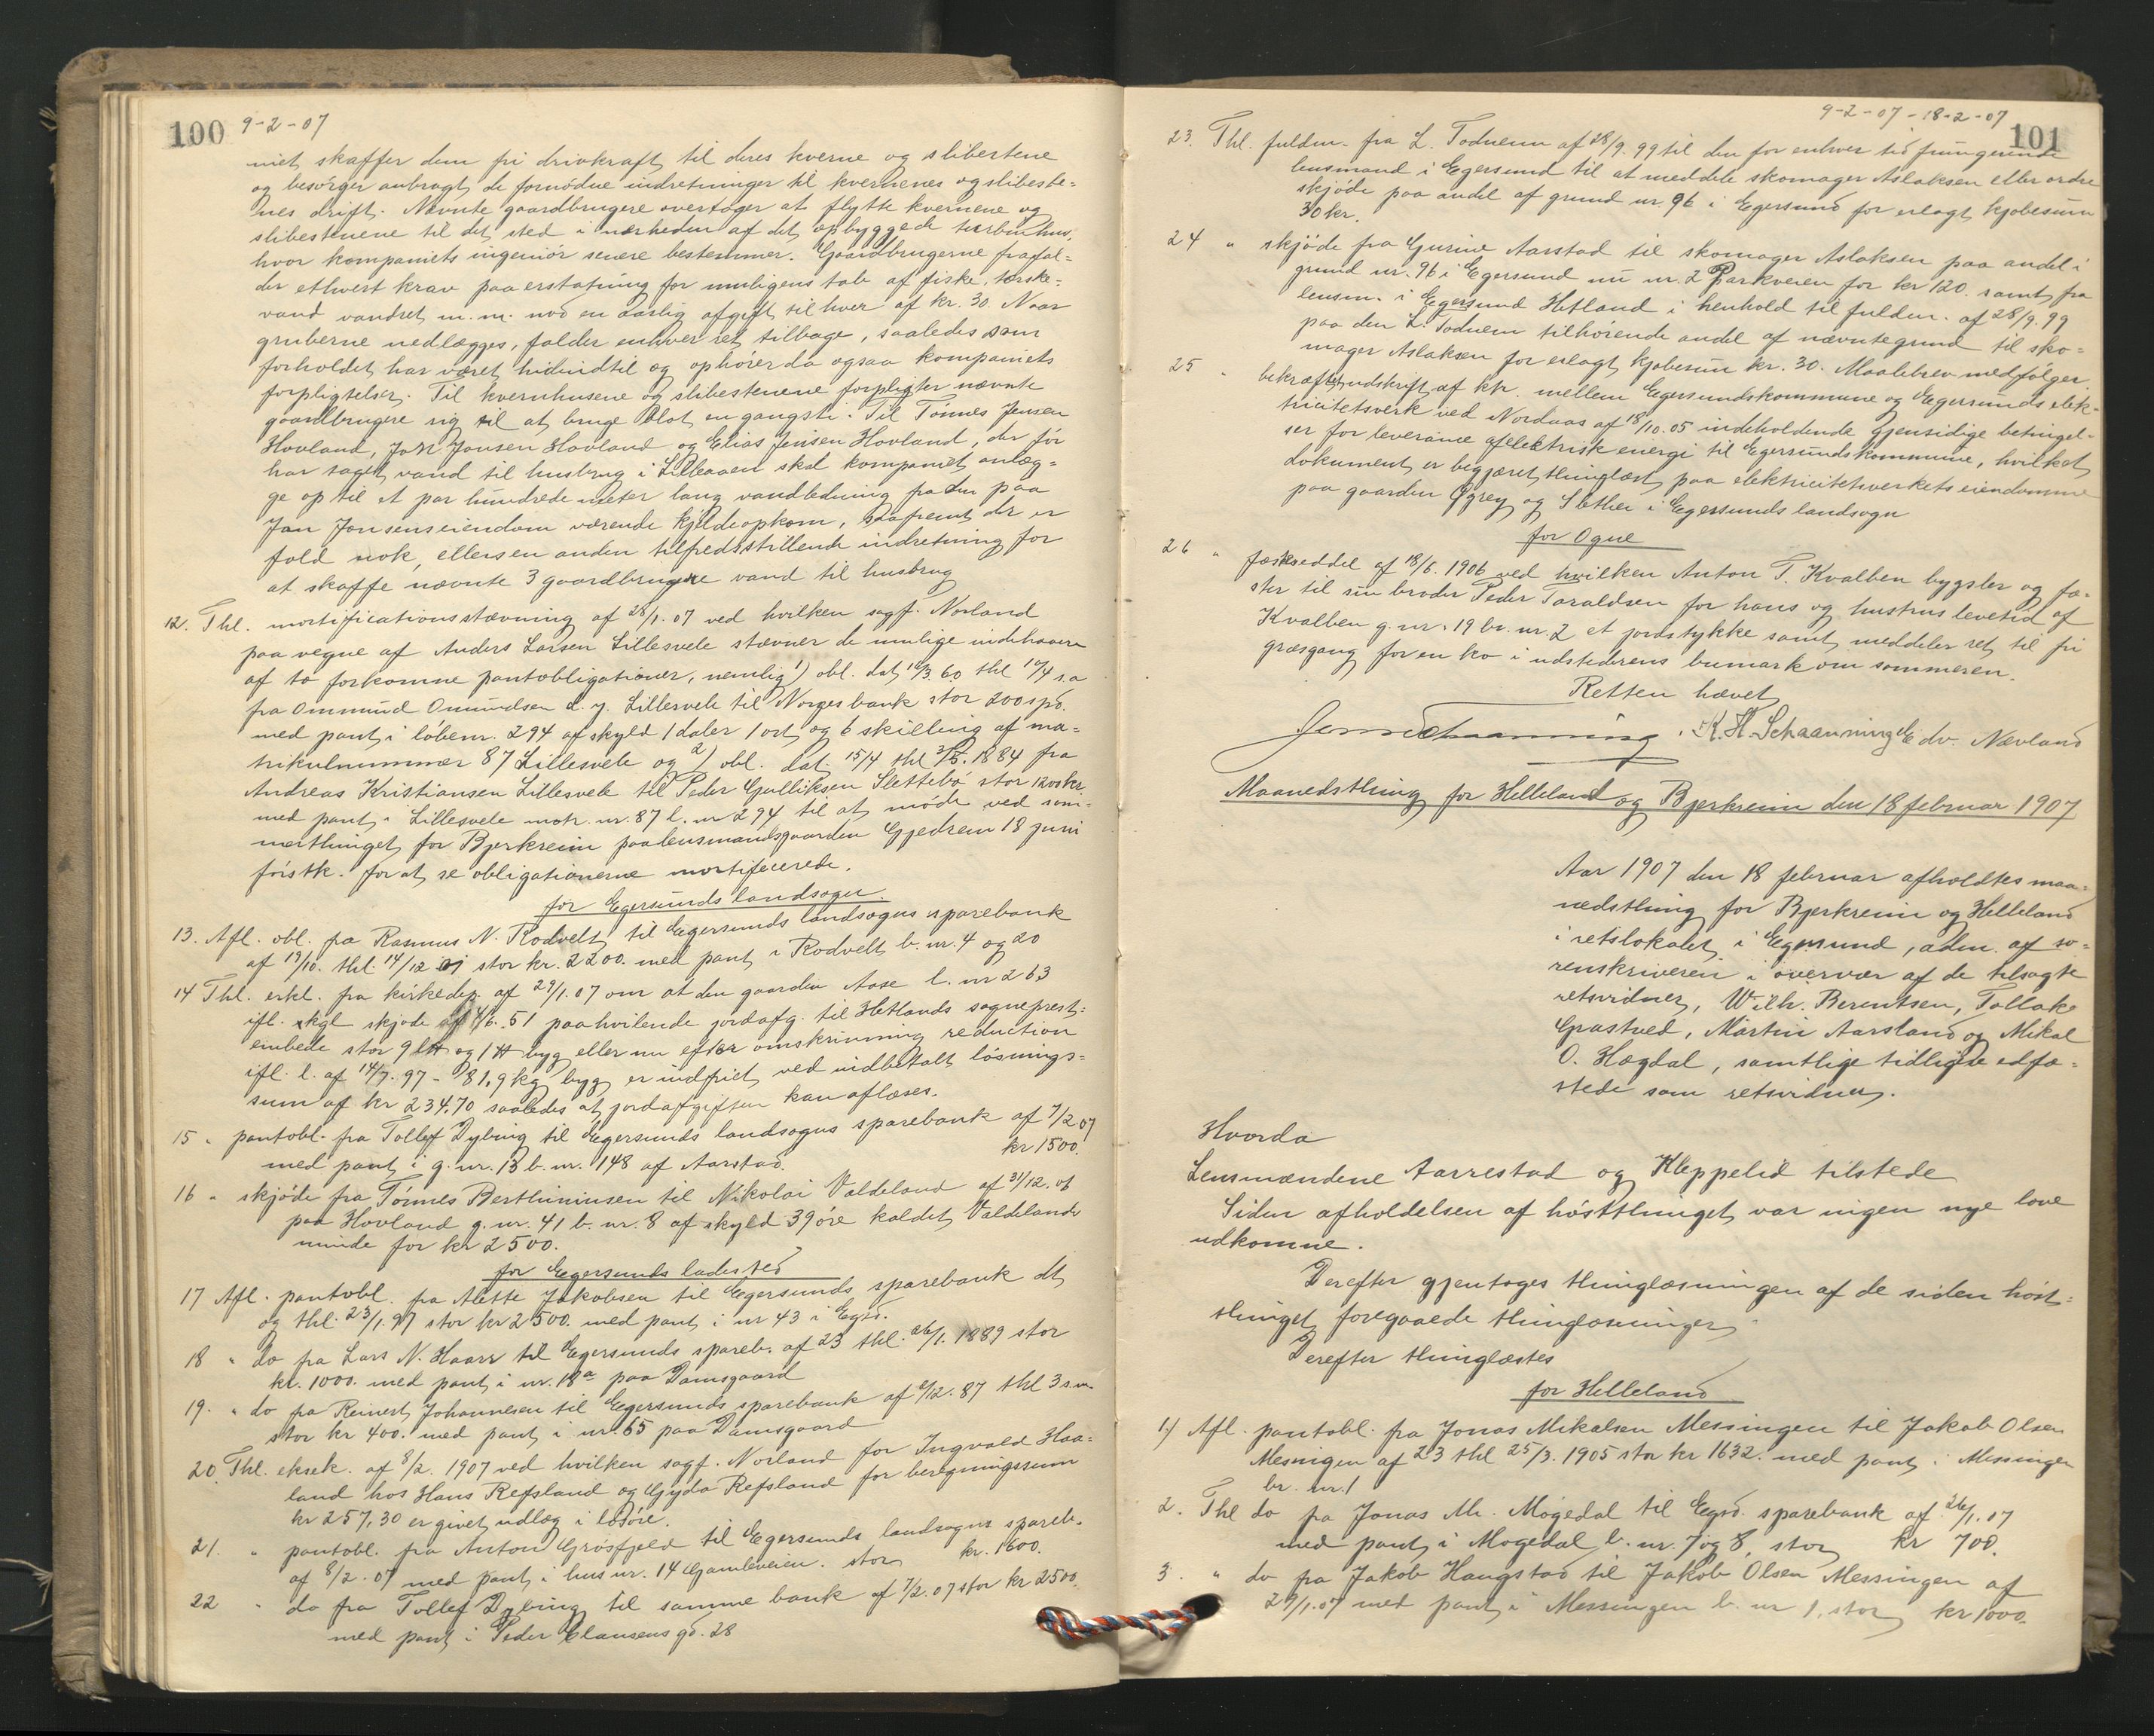 100 9-2-07
niet skaffer dem fri drivkraft til deres kverne og slibestene
og besörger anbragt de fornödne indretninger til kvernenes og slibeste-
nes drift. Nævnte gaardbrugere overtager at flytte kvernene og
slibestenene til det sted i nærheden af det opbyggede turbinhus,
hvor kompaniets ingeniör senere bestemmer. Gaardbrugerne frafal-
der ethvert krav paa erstatning for muligens tab af fiske, ferske-
vand vandret m.m. mod en aarlig afgift til hver af kr. 30. Naar
gruberne nedlægges, falder enhver ret tilbage, saaledes som
forholdet har været hidindtil og ophörer da ogsaa kompaniets
forpligtelser. Til kvernhusene og slibestenene forpligter nævnte
gaardbrugere sig til at bruge blot en gangsti. Til Tönnes Jensen
Hovland, Jan Jonsen Hovland og Elias Jensen Hovland, der för
har taget vand til husbrug i Lilleaaen skal kompaniet anlæg-
ge op til et par hundrede meter lang vandledning fra den paa
Jan Jonsens eiendom værende kjeldeopkom, saafremt der er
fald nok, eller en anden tilfredsstillende indretning for
at skaffe nævnte 3 gaardbrugere vand til husbrug
12. Thl. mortificationsstævning af 28/1. 07 ved hvilken sagf. Norland
paa vegne af Anders Larsen Lillesvele stævner de mulige indehavere
af to forkomne pantobligationer, nemlig 1) obl. dat 16/3. 60 thl 14/4 s.a
fra Ommund Omundsen d. y. Lillesvele til Norges bank stor 200 spd.
med pant i löbenr. 294 af skyld 1 daler 1 ort og 6 skilling af ma-
trikulnummer 87 Lillesvele og 2) obl. dat. 15/4 thl 3/5. 1884 fra
Andreas Kristiansen Lillesvele til Peder Gulliksen Slettebö stor 1200 kr.
med pant i Lillesvele matr. nr. 87 l. nr 294 til at möde ved som-
merthinget for Bjerkreim paa lensmandsgaarden Gjedrem 18 juni
förstk. for at se obligationerne mortificerede.
for Egersunds landsogn
13. Afl. obl. fra Rasmus N. Rodvelt til Egersunds landsogns sparebank
af 19/10. thl. 14/12 01 stor kr. 2200. med pant i Rodvelt b. nr. 4 og 20
14 Thl. erkl. fra kirkedep. af 29/1. 07 om at den gaarden Aase l. nr 263
ifl. kgl skjøde af 4/6. 51 paahvilende jordafg. til Hetlands sogneprest-
embede stor 9 l℔ og 1 ℔ byg eller nu efter omskrivning reduction
ifl. l. af 14/7. 97 - 81,9 kg byg er indfriet ved indbetalt lösnings-
sum af kr 234.70 saaledes at jordafgiften kan aflæses.
15 " pantobl. fra Tollef Dybing til Egersunds landsogns sparebank af 7/2 07
med pant i g. nr. 13 b. nr. 148 af Aarstad. kr 1500.
16 " skjöde fra Tönnes Berthiniusen til Nikolai Valdeland af 31/12. 06
paa Hovland g. nr. 41 b. nr. 8 af skyld 39 öre kaldet Valdelands
minde for kr 2500.
for Egersunds ladested
17 Afl. pantobl. fra Alette Jakobsen til Egersunds sparebank dt
og thl. 23/1. 97 stor kr 2500. med pant i nr 43 i Egsd.
18 " do fra Lars N. Haarr til Egersunds spareb. af 23 thl. 26/1. 1889 stor
kr. 1000. med pant i nr. 18a paa Damsgaard
19. " do fra Reinert Johannesen til Egersunds sparebank af 2/12. 87 thl 3 s.m.
stor kr 400. med pant i nr. 65 paa Damsgaard
20. Thl. eksek. af 8/2. 1907 ved hvilken sagf. Norland for Ingvald Haa-
land hos Hans Refsland og Gyda Refsland for beregningssum
kr 257,30 er givet udlæg i lösöre.
21. " pantobl. fra Anton Grösfjeld til Egersunds landsogns spareb.
af 8/2. 07 med pant i hus nr. 14 Gamleveien. stor kr. 1600.
22 " do fra Tollef Dybing til samme bank af 7/2. 07 stor kr 2500.
med pant i Peder Clausens gd. 28
9-2-07 - 18-2-07 101
23. Thl. fuldm. fra L. Toduem af 28/9. 99 til den for enhver tid fungerende
lensmand i Egersund til at meddele skomager Aslaksen eller ordre
skjöde paa andel af grund nr. 96 i Egersund for erlagt kjöbesum
30 kr.
24 " skjöde fra Gurine Aarstad til skomager Aslaksen paa andel i
grund nr. 96 i Egersund nu nr. 2 Parkveien for kr 120. samt fra
lensm. i Egersund Hetland i henhold til fuldm. af 28/9. 99
paa den L. Toduem tilhörende andel af nævnte grund til sko-
mager Aslaksen for erlagt kjöbesum kr. 30. Maalebrev medfölger.
25 " bekræftet udskrift af kpr. mellem Egersunds kommune og Egersunds elek-
tricitetsverk ved Nordaas af 18/10. 05 indeholdende gjensidige betingel-
ser for leverance af elektrisk energi til Egersunds kommune, hvilket
dokument er begjæret thinglæst paa elektricitetsverkets eiendomme
paa gaarden Øgrey og Slethei i Egersunds landsogn
for Ogne
26 " fæsteseddel af 18/6. 1906 ved hvilken Anton T. Kvalben bygsler og fæ-
ster til sin broder Peder Taraldsen for hans og hustrus levetid af
Kvalben g. nr. 19 br. nr. 2 et jordstykke samt meddeler ret til fri
græsgang for en ko i udstederens bumark om sommeren.
Retten hævet
Schaanning. K. H. Schaanning Edv. Nævland
Maanedsthing for Helleland og Bjerkreim den 18 februar 1907
Aar 1907 den 18 februar afholdtes maa-
nedsthing for Bjerkreim og Helleland
i retslokalet i Egersund, adm. af so-
renskriveren i overvær af de tilsagte
retsvidner, Wilh. Berentsen, Tollak
Grastved, Martin Aarsland og Mikal
O. Hægdal, samtlige tidligere edfæ-
stede som retsvidner.
Hvorda
Lensmændene Aarrestad og Kleppelid tilstede
Siden afholdelsen af höstthinget var ingen nye love
udkomne.
Derefter gjentoges thinglæsningen af de siden höst-
thinget foregaaede thinglæsninger
Derefter thinglæstes
for Helleland
1) Afl. pantobl. fra Jonas Mikalsen Messingen til Jakob Olsen
Messingen af 23 thl 25/3. 1905 stor kr 1632. med pant i Messingen
br. nr. 1
2. Thl do fra Jonas M. Mögedal til Egsd. sparebank af 26/1. 07
med pant i Mögedal b. nr. 7 og 8, stor kr 700.
3. " do fra Jakob Haugstad til Jakob Olsen Messingen af
29/1. 07 med pant i Messingen b. nr 1, stor kr 1000.